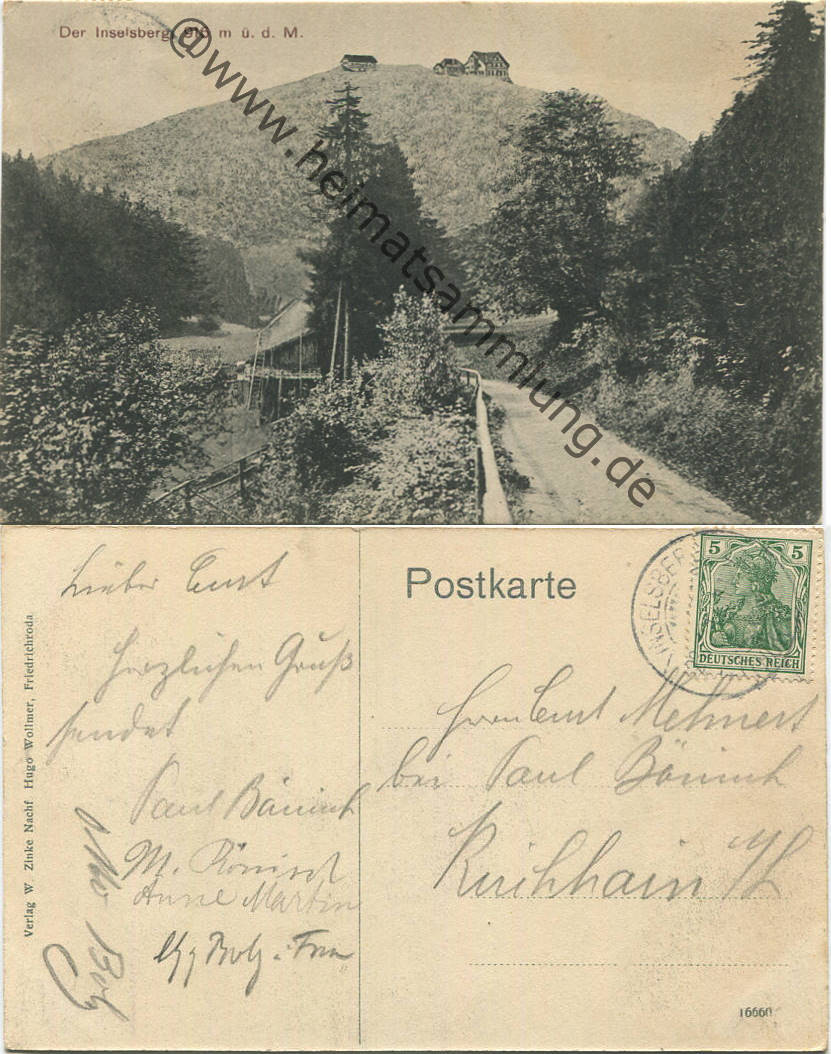 Der Inselsberg, 916 m ü. d. M.
@www.heimatsammlung.de
Postkarte
INSELSBERG
5 5
DEUTSCHES REICH
Lieber Curt
Herzlichen Gruß
sendet
Paul
M.
Anne Martin
Otto
Herrn Curt Mehnert
bei Paul
Kirchhain N/L
Verlag W. Zinke Nachf Hugo Wollmer, Friedrichroda
16660